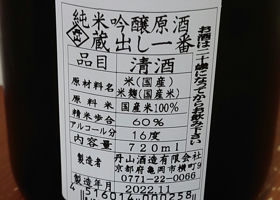 純米吟醸原酒
蔵出し一番
お酒は二十歳になってからお飲み下さい
品目 清酒
原材料名 米(国産)
米麹(国産米)
原料米 国産米100%
精米歩合 60%
アルコール分 16度
内容量 720ml
製造者 丹山酒造有限会社
京都府亀岡市横町9
0771-22-0066
製造年月 2022.11
4 516014 000258